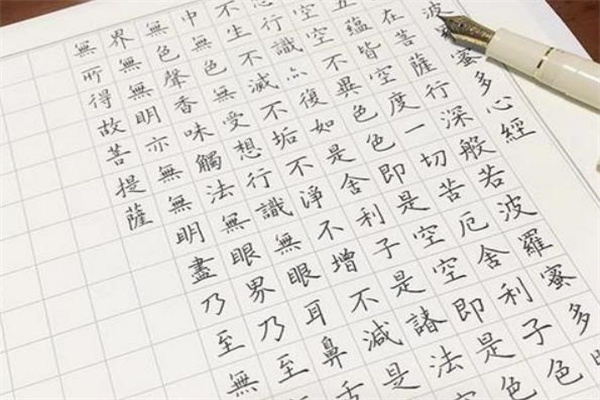 蜜多心經
在菩薩行深般若波羅蜜多
五蘊皆空度一切苦厄舍利子色
空空不異色色即是空空即是色
行識亦復如是舍利子是諸法
不生不滅不垢不淨不增不減是
中無色無受想行識無眼耳鼻舌
無色聲香味觸法無眼界乃至
界無無明亦無無明盡乃至無
無所得故菩提薩